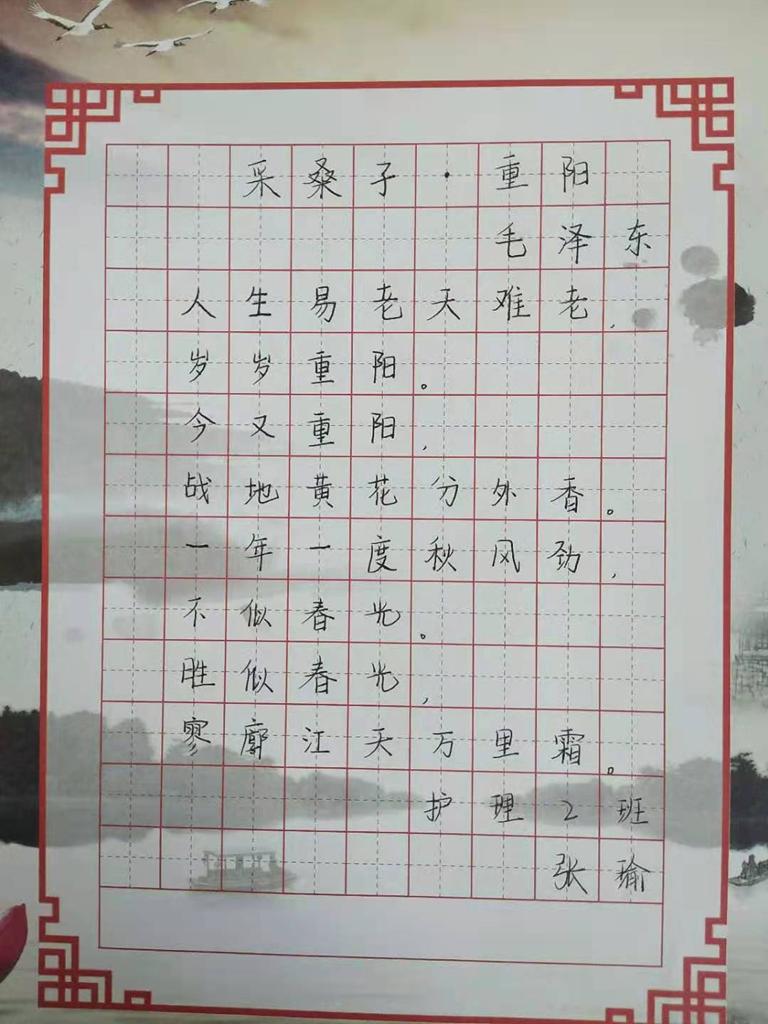 采桑子·重阳
毛泽东
人生易老天难老,
岁岁重阳。
今又重阳,
战地黄花分外香。
一年一度秋风劲,
不似春光。
胜似春光,
寥廓江天万里霜。
护理2班
张瑜